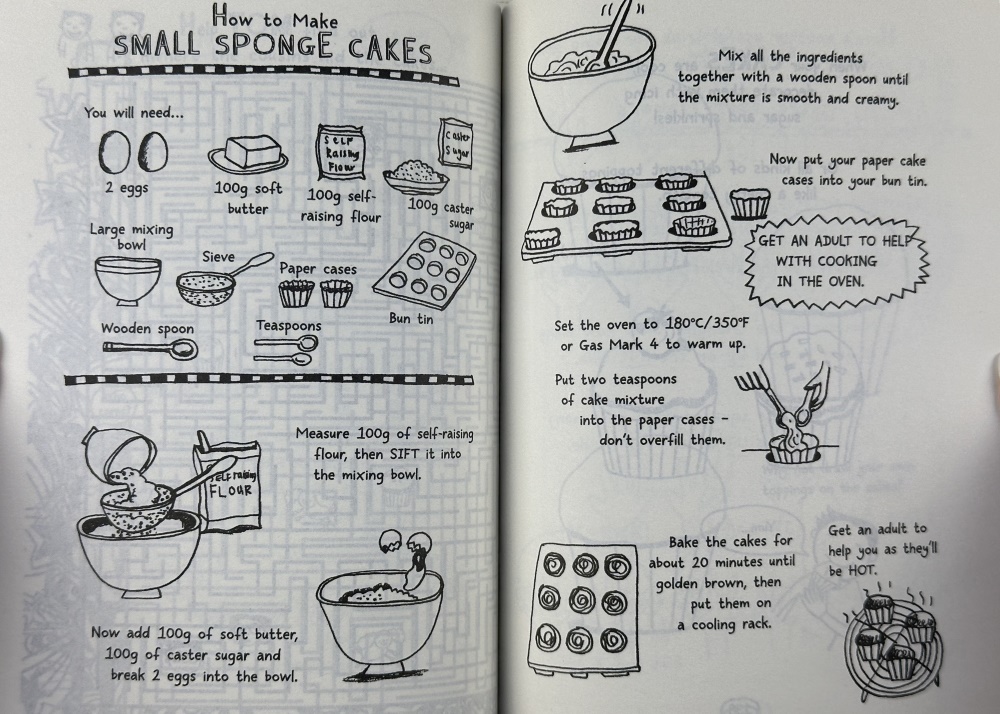 How to Make
SMALL SPONGE CAKES
You will need...
2 eggs
100g soft
butter
Self
Raising
Flour
100g self-
raising flour
Caster
Sugar
100g caster
sugar
Large mixing
bowl
Sieve
Paper cases
Bun tin
Wooden spoon
Teaspoons
Measure 100g of self-raising
flour, then SIFT it into
the mixing bowl.
Self raising
FLOUR
Now add 100g of soft butter,
100g of caster sugar and
break 2 eggs into the bowl.
Mix all the ingredients
together with a wooden spoon until
the mixture is smooth and creamy.
Now put your paper cake
cases into your bun tin.
GET AN ADULT TO HELP
WITH COOKING
IN THE OVEN.
Set the oven to 180°C/350°F
or Gas Mark 4 to warm up.
Put two teaspoons
of cake mixture
into the paper cases –
don't overfill them.
Bake the cakes for
about 20 minutes until
golden brown, then
put them on
a cooling rack.
Get an adult to
help you as they'll
be HOT.